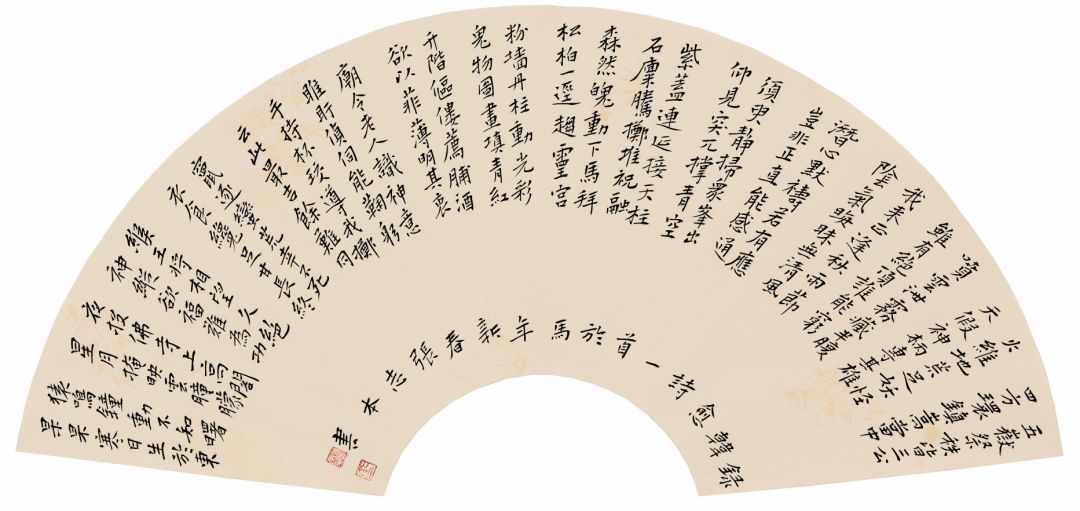 五嶽祭秩皆三公
四方環鎮嵩當中
火維地荒足妖怪
天假神柄專其雄
噴雲泄霧藏半腹
雖有絕頂誰能窮
我来正逢秋雨節
陰氣晦昧無清風
潛心默禱若有應
豈非正直能感通
須臾靜掃衆峯出
仰見突兀撑青空
紫蓋連延接天柱
石廩騰擲堆祝融
森然魄動下馬拜
松柏一逕趨靈宮
粉墻丹柱動光彩
鬼物圖畫填青紅
升階傴僂薦脯酒
欲以菲薄明其衷
廟令老人識神意
睢盱偵伺能鞠躬
手持杯珓導我擲
云此最吉餘難同
竄逐蠻荒幸不死
衣食纔足甘長終
侯王將相望久絕
神縱欲福難為功
夜投佛寺上高閣
星月掩映雲朣朧
猿鳴鐘動不知曙
杲杲寒日生於東
錄韓愈詩一首於馬年新春張志本書